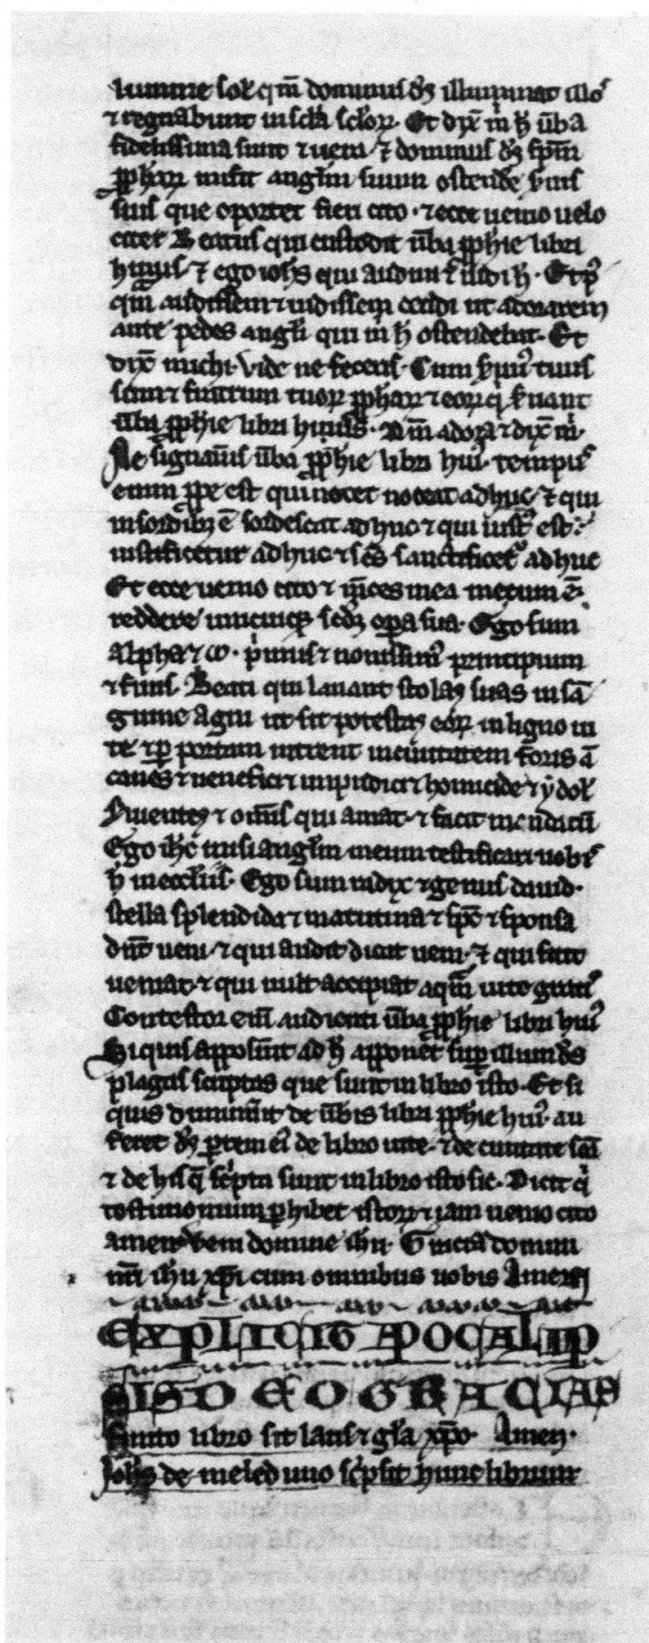 lumine sol' qm̄ dominus ds̄ illuminat illos
⁊ regnabunt in scl̄a sclor̄. Et dix̄ m̄ h̄ ūba
fidelissima sunt ⁊ uera ⁊ dominus ds̄ spm̄
ꝓphar̄ misit angl̄m suum ostende s̄uis
suis que oportet fieri cito ⁊ ecce uenio uelo
citer Beatus qui custodit ūba ꝓphie libri
huius ⁊ ego iohs̄ qui audiui ⁊ uidi h̄. Et pꝰ
qm̄ audissem ⁊ uidissem cecidi ut adorarem
ante pedes angl̄i qui m̄ h̄ ostendebat. Et
dix̄ michi. Vide ne feceris. Cum s̄uus tuus
sum ⁊ fratrum tuor̄ ꝓphar̄ ⁊ eor̄ q̄ s̄uant
ūba ꝓphie libri huius. Dm̄ adora ⁊ dix̄ m̄.
Ne signaueris ūba ꝓphie libri huiꝰ. tempus
enim ꝓpe est qui nocet noceat adhuc ⁊ qui
in sordibȝ ē sordescat adhuc ⁊ qui iustꝰ est
iustificetur adhuc ⁊ scs̄ sanctificetꝰ adhuc
Et ecce uenio cito ⁊ m̄ces mea mecum ē.
reddere unicuiqȝ scdȝ opera sua. Ego sum
alpha ⁊ ω. p̄mus ⁊ nouissimꝰ principium
⁊ finis. Beati qui lauant stolas suas in sā
guine agni ut sit potestas eor̄ in ligno ui
te ⁊ ꝑ portam intrent in ciuitatem foris ā
canes ⁊ uenefici ⁊ impudici ⁊ homicide ⁊ ydol'
s̄uientes ⁊ omīs qui amat ⁊ facit mendaciū
Ego ihc̄ misi angl̄m meum testificari uobis
h̄ in eccl̄iis. Ego sum radix ⁊ genus dauid.
stella splendida ⁊ matutina ⁊ spc̄ ⁊ sponsa
dn̄t ueni ⁊ qui audit dicat ueni. ⁊ qui sitit
ueniat ⁊ qui uult accipiat aqm̄ uite gratis
Contestor em̄ audienti ūba ꝓphie libri huiꝰ
Si quis apposūit ad h̄ apponet suꝑ illum ds̄
plagas scriptas que sunt in libro isto. Et si
quis diminūit de ūbis libri ꝓphie huiꝰ. au
feret ds̄ ꝑtem eiꝰ de libro uite. ⁊ de ciuitate scā
⁊ de his q̄ scripta sunt in libro isto sic. Dicit q̄
testimonium ꝑhibet istor̄ ⁊ iam uenio cito
amen. Veni domine ihu. Gracia domini
nr̄i ihu xp̄i cum omnibus uobis Amen
EXPLICIT APOCALIP
SIS DEO GRACIAS
Finito libro sit laus ⁊ grā xp̄o. Amen.
Johs̄ de meleduno scripsit hunc librum